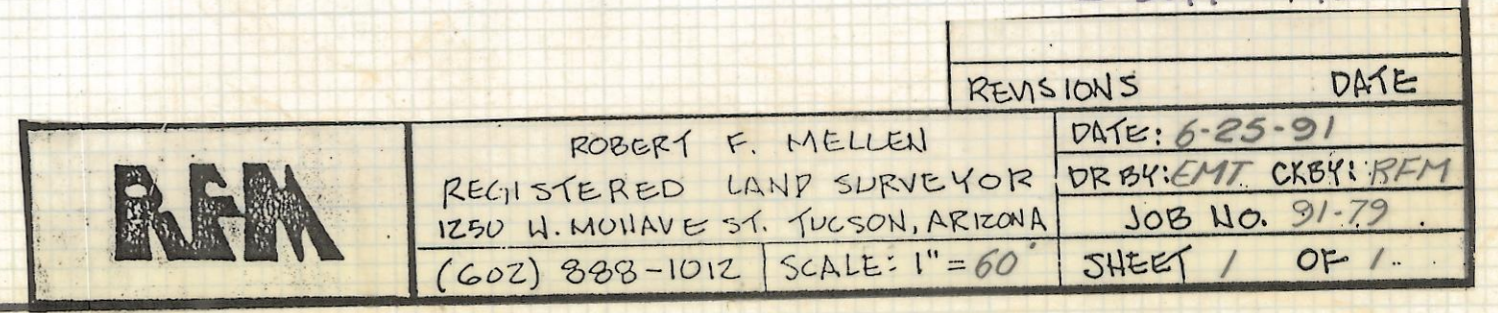 REVISIONS DATE
RFM
ROBERT F. MELLEN
REGISTERED LAND SURVEYOR
1250 W. MOHAVE ST. TUCSON, ARIZONA
(602) 888-1012
SCALE: 1" = 60'
DATE: 6-25-91
DR BY: EMT CKBY: RFM
JOB NO. 91-79
SHEET 1 OF 1